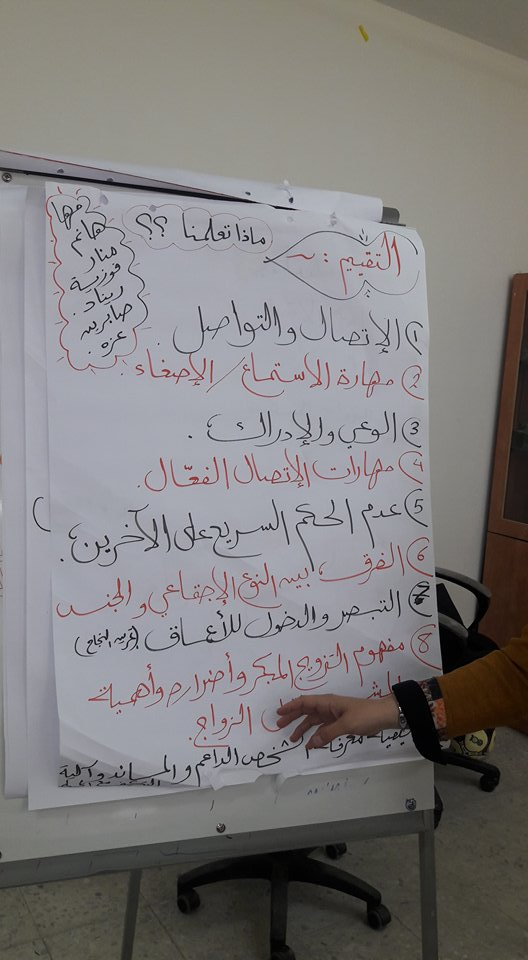 التقييم :~
ماذا تعلمنا ؟؟
مها
هانم
منار
فوزية
ريناد
صابرين
عزه
1 الإتصال والتواصل .
2 مهارة الاستماع / الإصغاء .
3 الوعي والإدراك .
4 مهارات الإتصال الفعّال .
5 عدم الحكم السريع على الآخرين .
6 الفرق بين النوع الإجتماعي و الجنس
7 التبصر والدخول للأعماق
8 مفهوم التزويج المبكر وأضراره وأهمية
الزواج .
الشخص الداعم والمساند